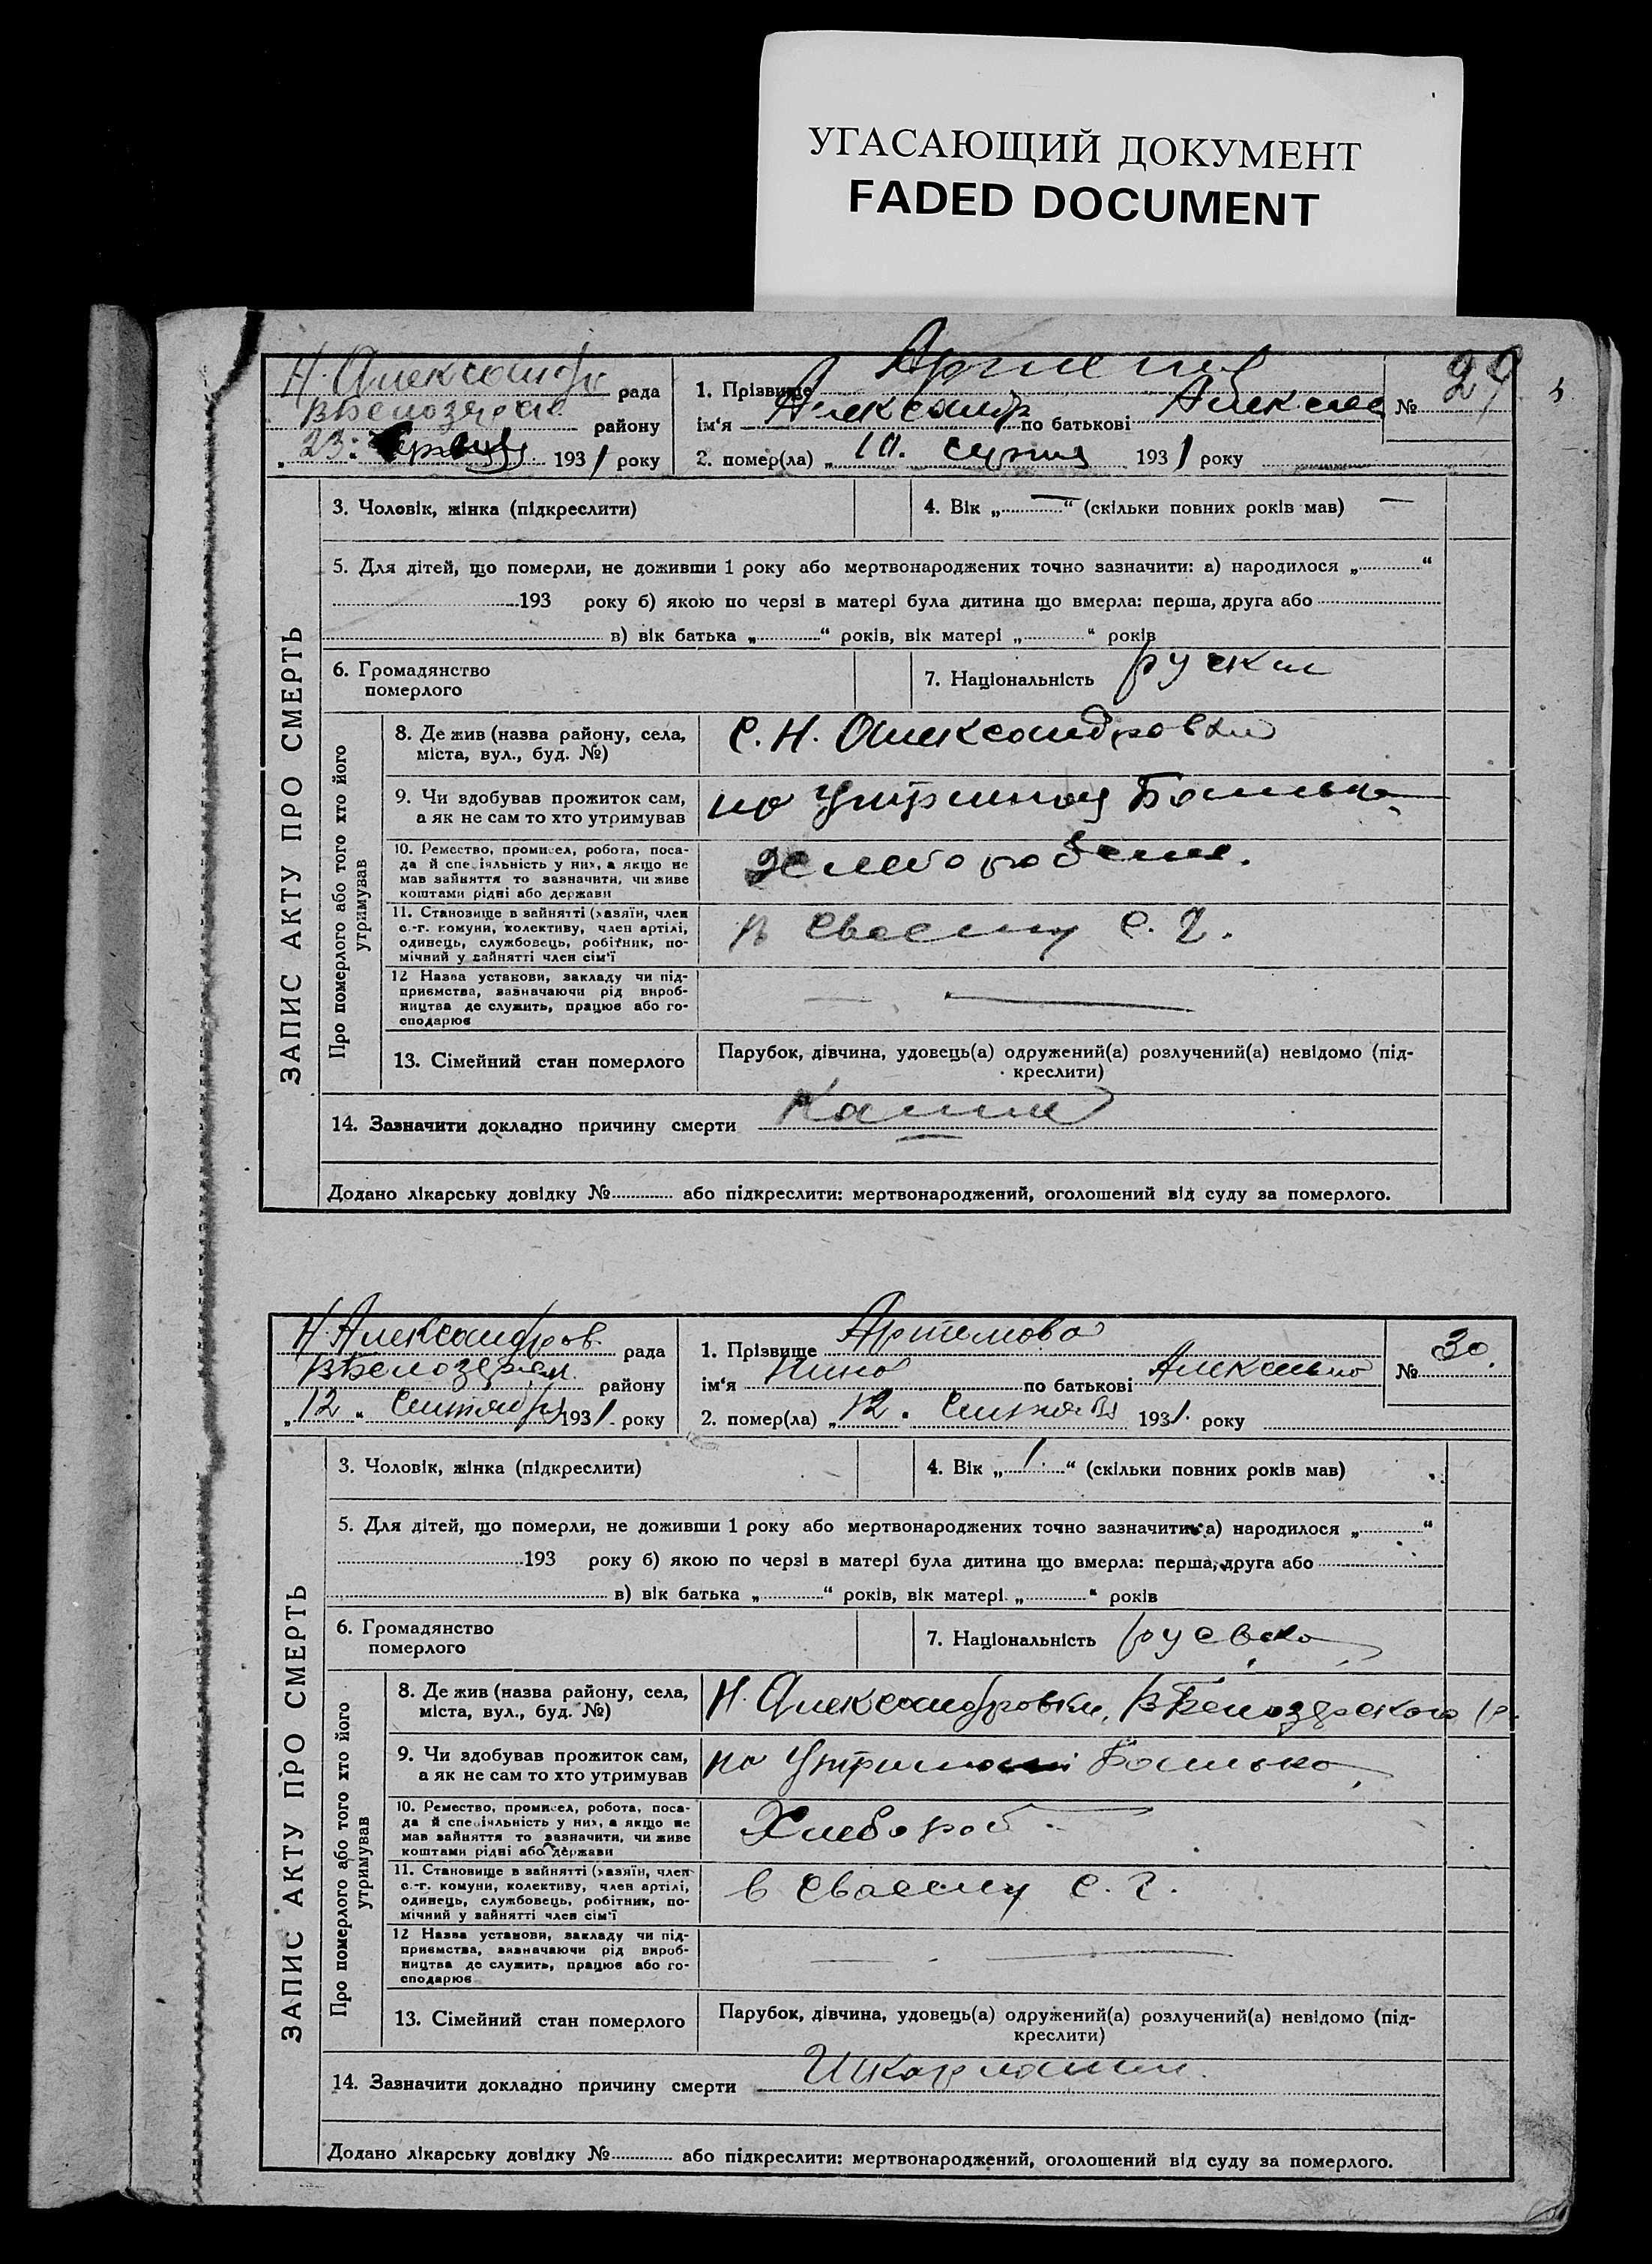 УГАСАЮЩИЙ ДОКУМЕНТ
FADED DOCUMENT
Н. Александр рада
району
„ 23. 1931 року
1. Прізвище
ім‘я Александр по батькові Алексее
2. помер(ла) „ 10. серпня 1931 року
№ 29
ЗАПИС АКТУ ПРО СМЕРТЬ
3. Чоловік, жінка (підкреслити)
4. Вік „ — “ (скільки повних років мав) —
5. Для дітей, що померли, не доживши 1 року або мертвонароджених точно зазначити: а) народилося „ “
193 року б) якою по черзі в матері була дитина що вмерла: перша, друга або
в) вік батька „ “ років, вік матері „ “ років
6. Громадянство
померлого
7. Національність руски
Про померлого або того хто його
утримував
8. Де жив (назва району, села,
міста, вул., буд. №)
С. Н. Олександровки
9. Чи здобував прожиток сам,
а як не сам то хто утримував
на Утриманя Батька
10. Ремество, промисел, робота, поса-
да й спеціяльність у них, а якщо не
мав зайняття то зазначити, чи живе
коштами рідні або держави
11. Становище в зайнятті (хазяїн, член
с.-г. комуни, колективу, член артілі,
одинець, службовець, робітник, по-
мічний у зайнятті член сім‘ї
в своему С. Г.
12 Назва установи, закладу чи під-
приємства, зазначаючи рід вироб-
ництва де служить, працює або го-
сподарює
—
13. Сімейний стан померлого
Парубок, дівчина, удовець(а) одружений(а) розлучений(а) невідомо (під-
креслити)
14. Зазначити докладно причину смерти
Додано лікарську довідку № або підкреслити: мертвонароджений, оголошений від суду за померлого.
Н. Александров. рада
ВБелозерск. району
„ 12 “ Сентября 1931 року
1. Прізвище Артемова
ім‘я Нина по батькові Алексевна
2. помер(ла) „ 12. Сентября 1931. року
№ 30.
ЗАПИС АКТУ ПРО СМЕРТЬ
3. Чоловік, жінка (підкреслити)
4. Вік „ 1. “ (скільки повних років мав)
5. Для дітей, що померли, не доживши 1 року або мертвонароджених точно зазначити: а) народилося „ “
193 року б) якою по черзі в матері була дитина що вмерла: перша, друга або
в) вік батька „ “ років, вік матері „ “ років
6. Громадянство
померлого
7. Національність
Про померлого або того хто його
утримував
8. Де жив (назва району, села,
міста, вул., буд. №)
Н. Александровки, ВБелозерского р.
9. Чи здобував прожиток сам,
а як не сам то хто утримував
на Утримані Батька
10. Ремество, промисел, робота, поса-
да й спеціяльність у них, а якщо не
мав зайняття то зазначити, чи живе
коштами рідні або держави
Хлебороб
11. Становище в зайнятті (хазяїн, член
с.-г. комуни, колективу, член артілі,
одинець, службовець, робітник, по-
мічний у зайнятті член сім‘ї
в своему С. Г.
12 Назва установи, закладу чи під-
приємства, зазначаючи рід вироб-
ництва де служить, працює або го-
сподарює
—
13. Сімейний стан померлого
Парубок, дівчина, удовець(а) одружений(а) розлучений(а) невідомо (під-
креслити)
14. Зазначити докладно причину смерти Шкарлатин
Додано лікарську довідку № або підкреслити: мертвонароджений, оголошений від суду за померлого.